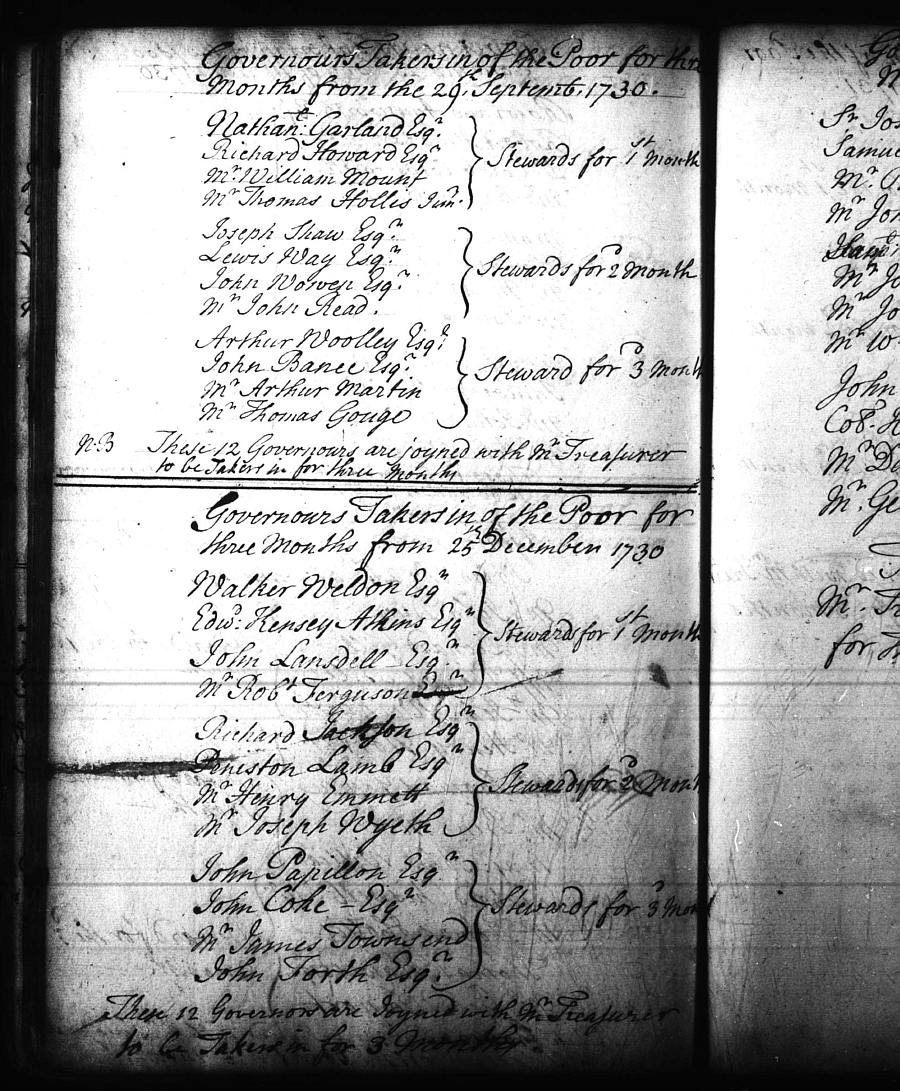 Governours Takers in of the Poor for three
Months from the 29th. Septemb. 1730.
Nathan: Garland Esqr.
Richard Howard Esqr
Mr. William Mount
Mr Thomas Hollis Junr.
Stewards for 1st Month
Joseph Shaw Esqr.
Lewis Way Esqr.
John Wowen Esqr.
Mr John Read.
Stewards for 2d Month
Arthur Woolley Esqr.
John Bance Esqr.
Mr Arthur Martin
Mr Thomas Gouge
Steward for 3d Month
N.B These 12 Governours are joyned with Mr Treasurer
to be Takers in for three Months
Governours Takers in of the Poor for
three Months from 25th December 1730
Walker Weldon Esqr
Edwd: Kensey Atkins Esqr
John Lansdell Esqr
Mr Robt Ferguson
Stewards for 1st Month
Richard Jackson Esqr
Peniston Lamb Esqr
Mr Henry Emmett
Mr Joseph Wyeth
Stewards for 2d Month
John Papillon Esqr
John Coke - Esqr
Mr James Townsend
John Forth Esqr.
Stewards for 3d Month
These 12 Governors are Joyned with Mr Treasurer
to be Takers in for 3 Months.
Go
Sr Jos
Samue
Mr.
Mr Jon
Mr Jo
Mr Jo
Mr W
John
Coll. H
Mr Da
Mr. Ge
Mr. Tr
for